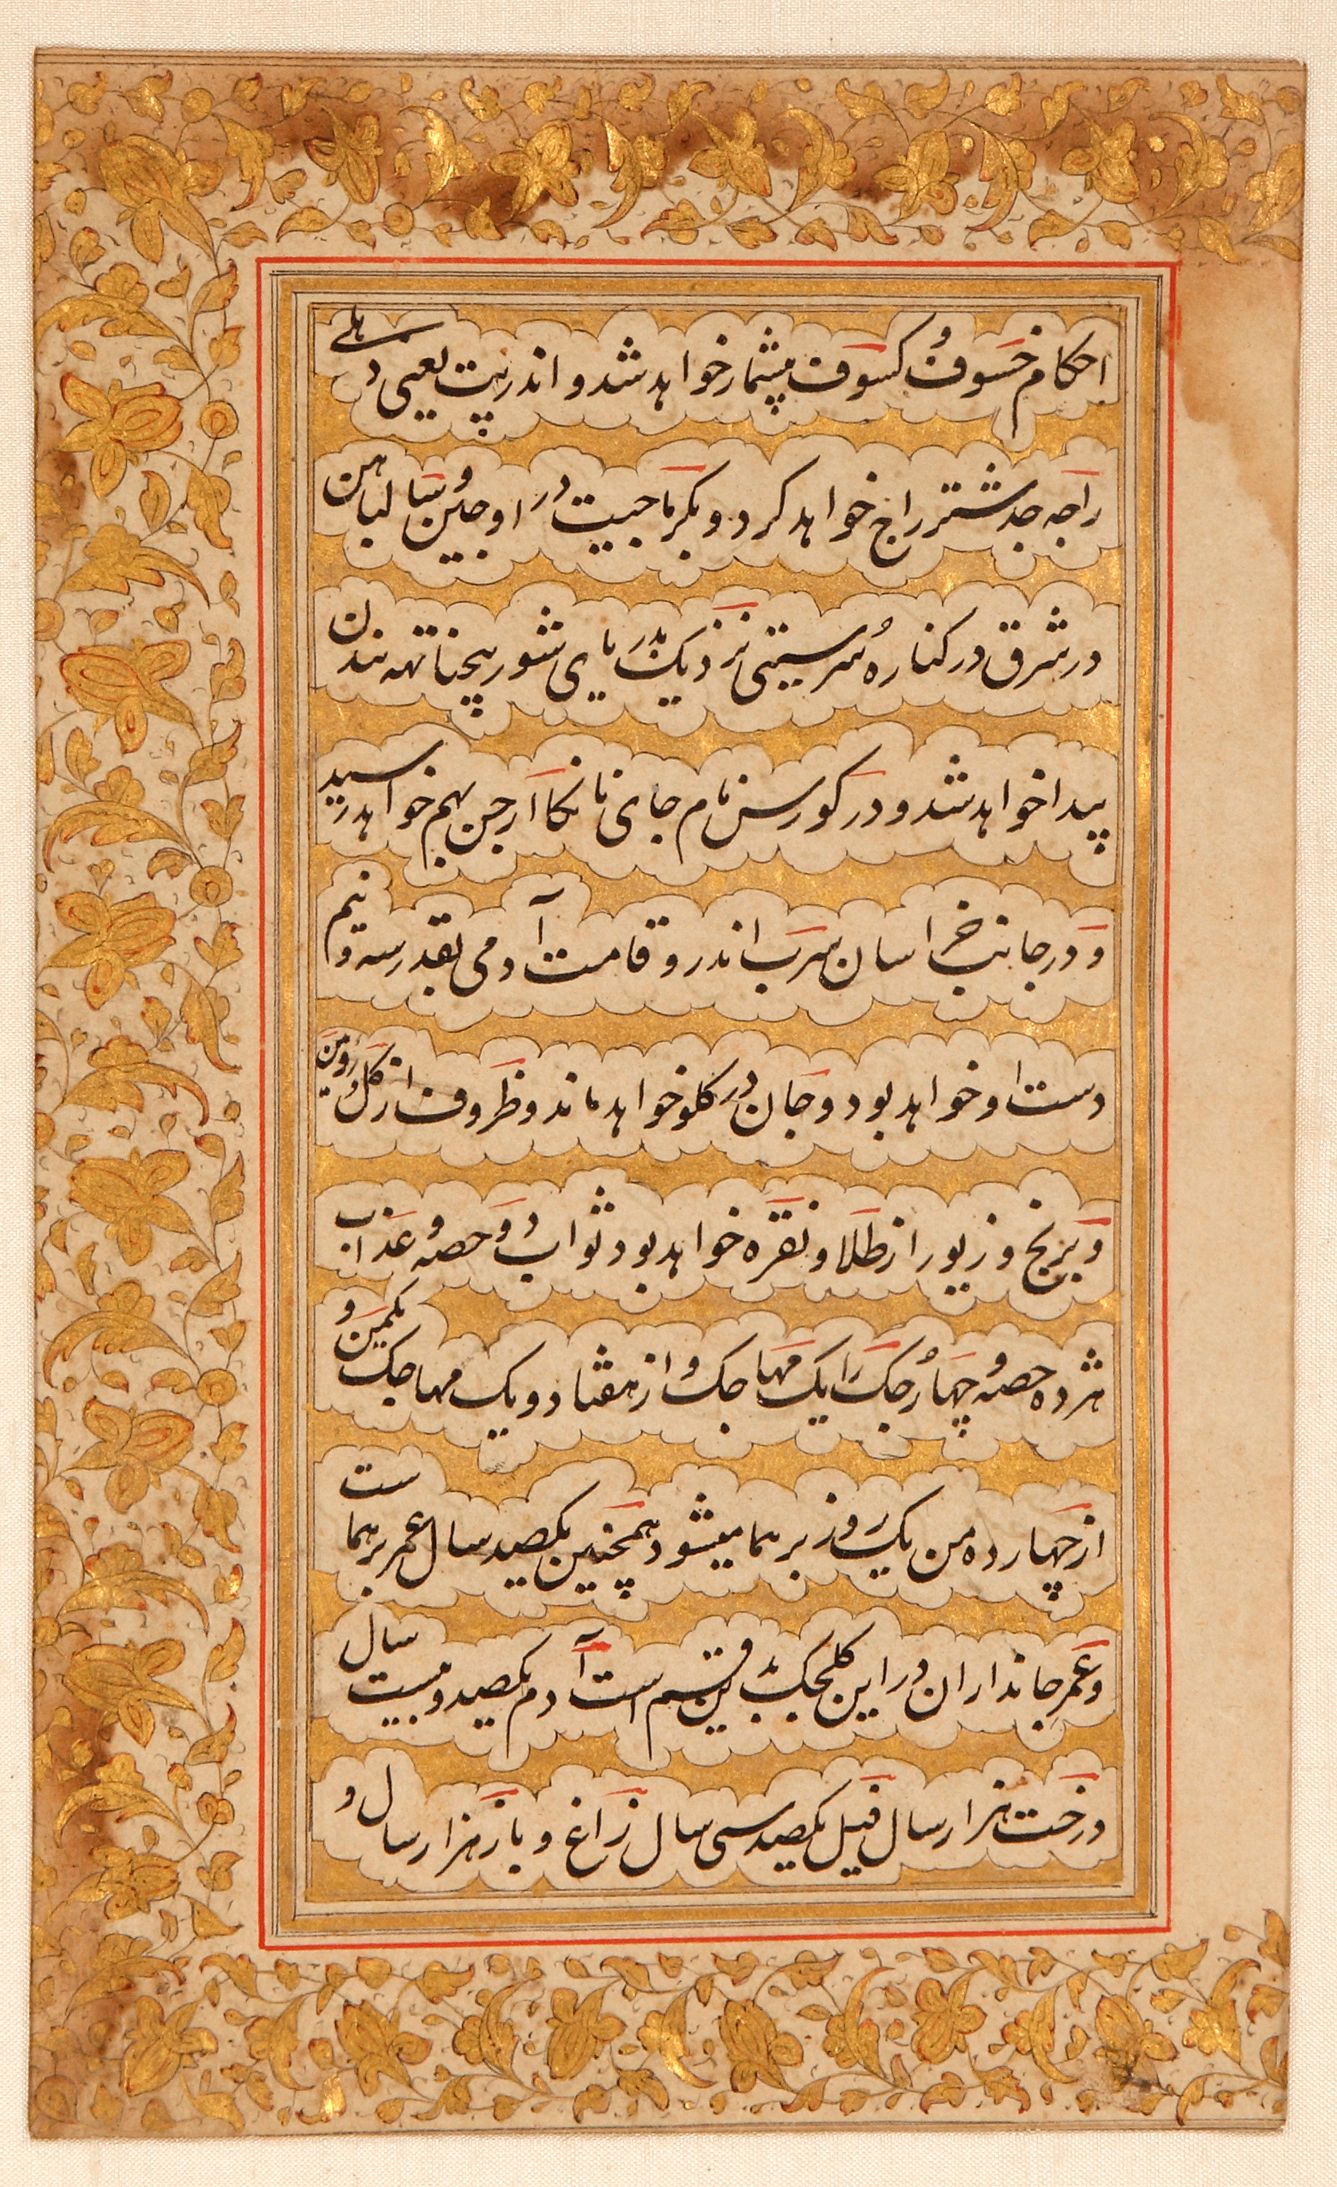 احکام خسوف و کسوف بیشمار خواهد شد و اندرپت یعنی دهلی
راجه جدشتر راج خواهد کرد و بکرماجیت در اوجین و سالباهن
در شرق در کناره سرستی نزدیک بدریای شور بیجناتهه نندن
پیدا خواهد شد و در کورسن نام جای نانکا ارجن بهم خواهد رسید
و در جانب خراسان سرب اندر و قامت آدمی بقدر سه و نیم
دست او خواهد بود و جان در کلو خواهد ماند و ظروف از کل و مس
و برنج و زیور از طلا و نقره خواهد بود ثواب دو حصه و عذاب
هژده حصه و چهار جک را یک مهاجک و از هفتاد و یک مهاجک یکمن و
از چهارده من یک روز برهما میشود همچنین یکصد سال عمر برهماست
و عمر جانداران در این کلجک بدین قسم است آدم یکصد و بیست سال
درخت هزار سال فیل یکصد سی سال زاغ و باز هزار سال و